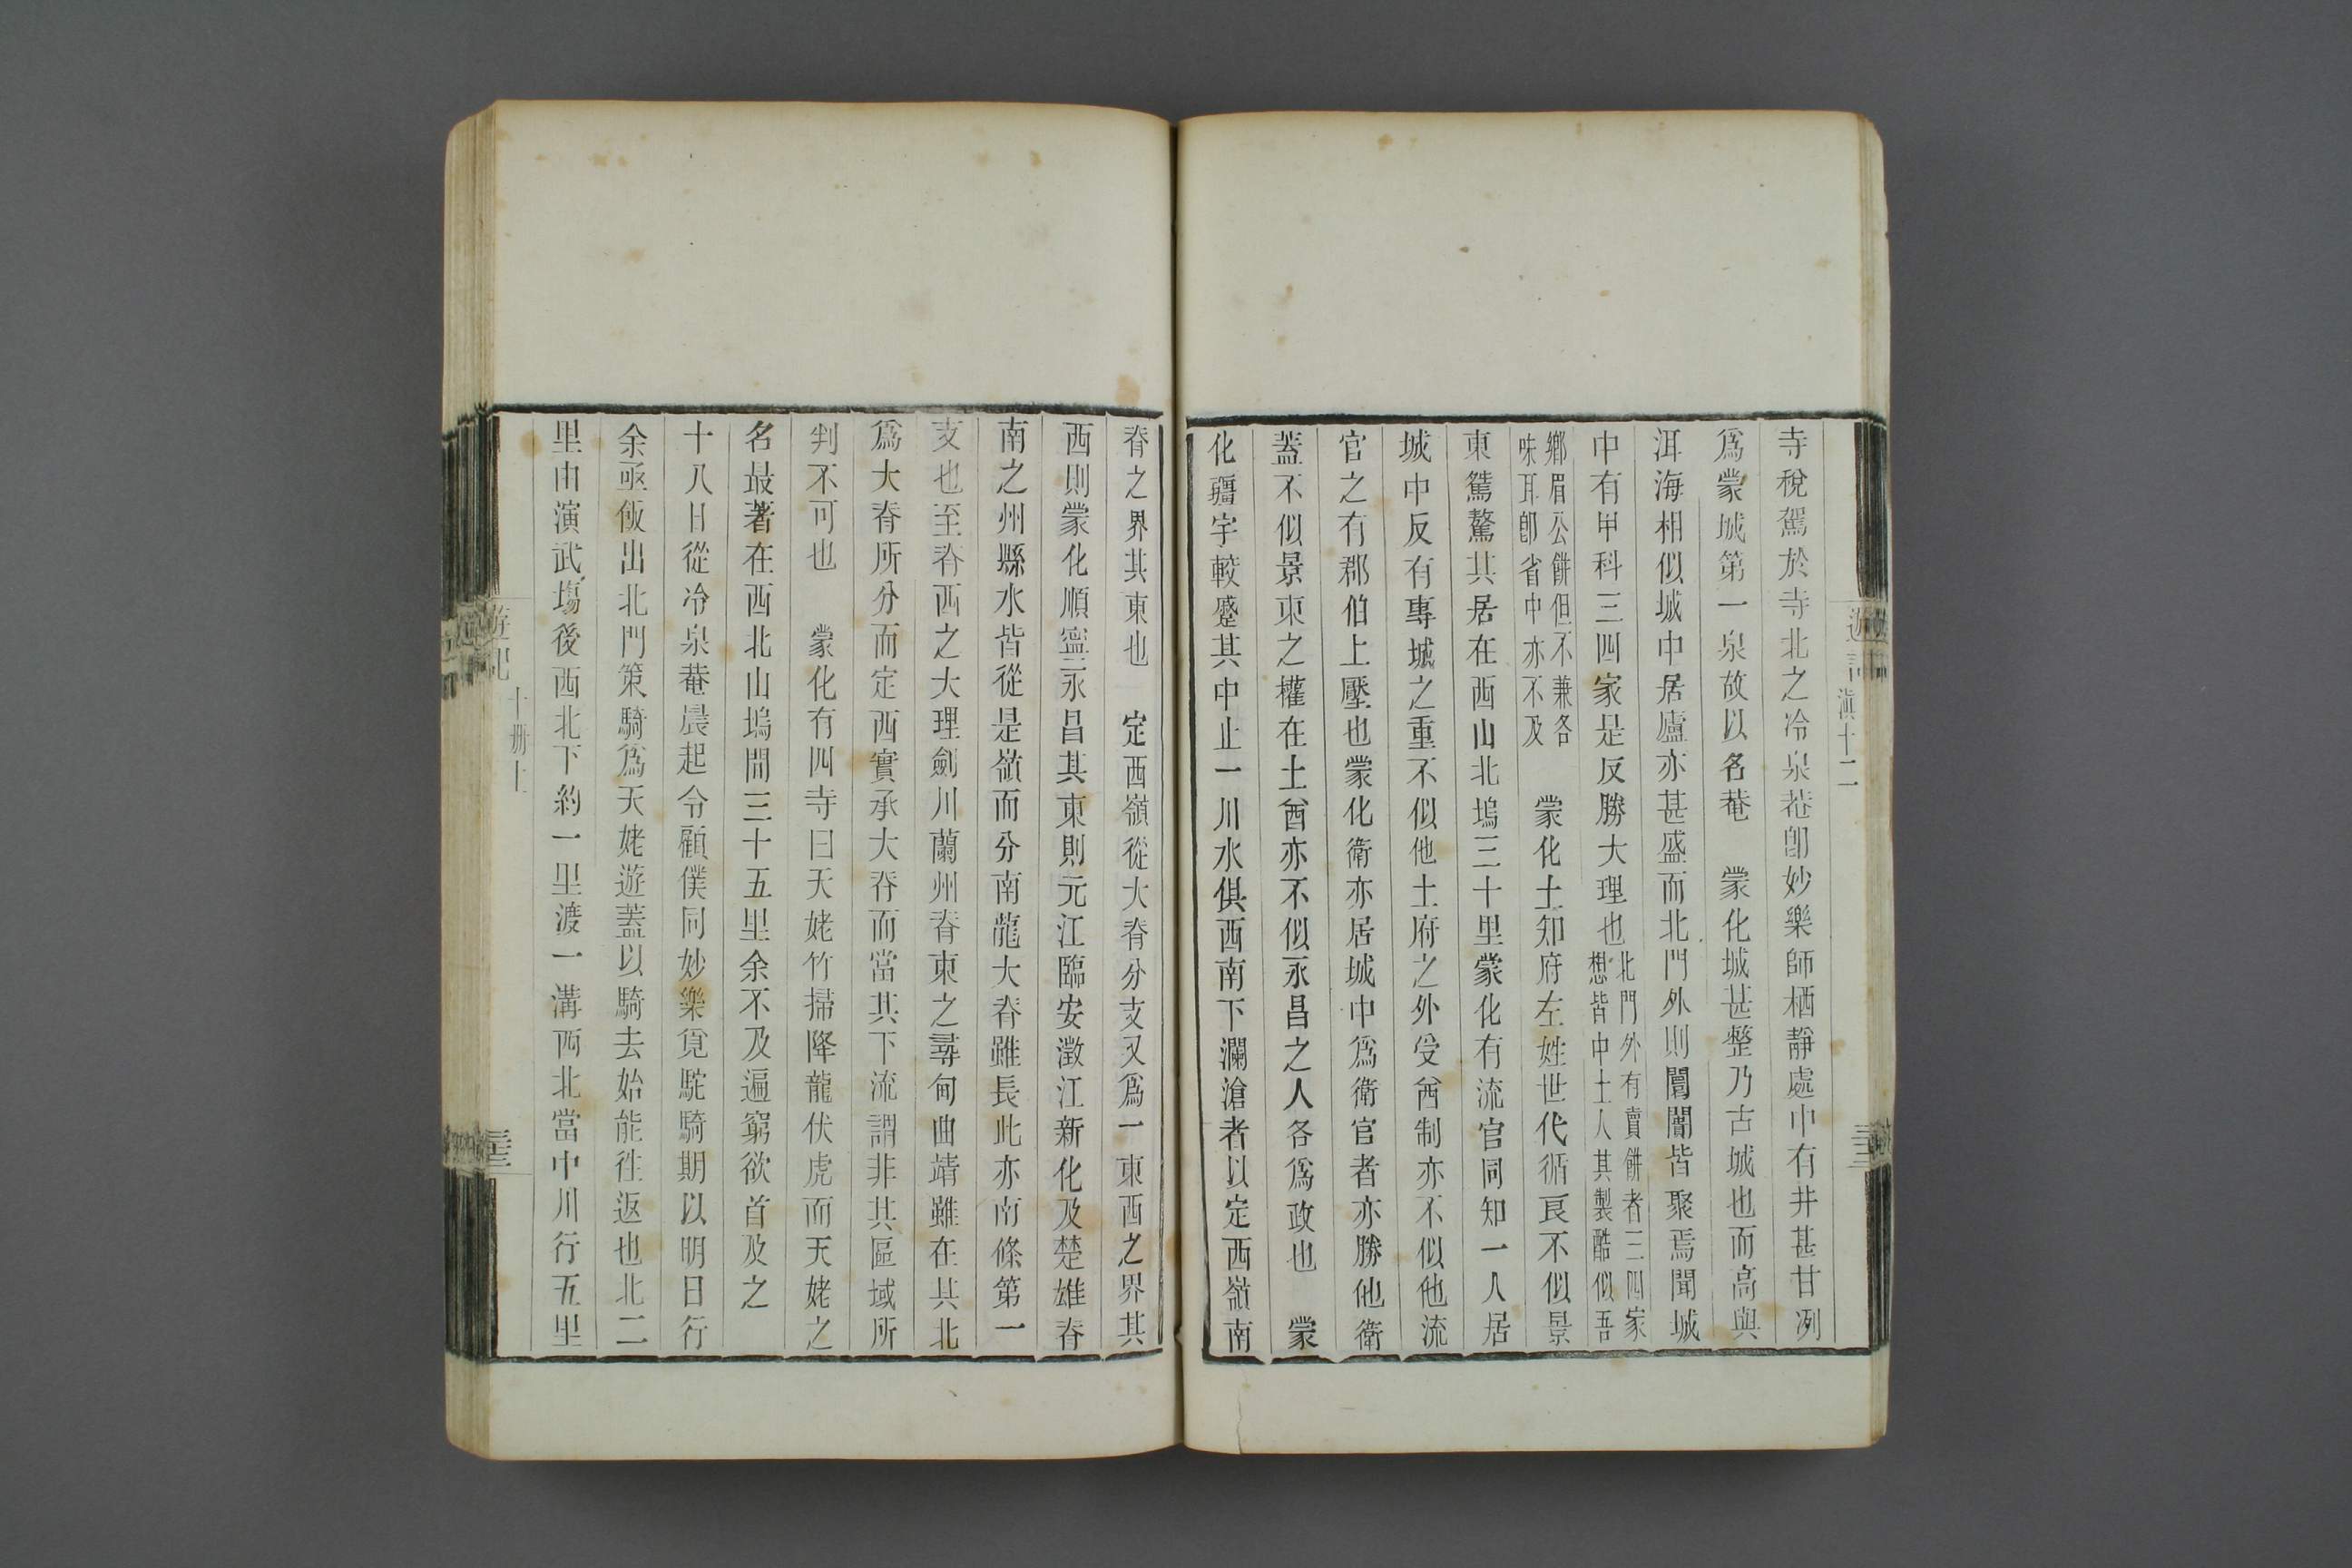 遊記
滇十二
寺稅駕於寺北之冷泉菴卽妙樂師栖靜處中有井甚甘冽
爲蒙城第一泉故以名菴　蒙化城甚整乃古城也而高與
洱海相似城中居廬亦甚盛而北門外則闤闠皆聚焉聞城
中有甲科三四家是反勝大理也
北門外有賣餠者三四家
想皆中土人其製酷似吾
鄉眉公餠但不兼各
味耳卽省中亦不及
蒙化土知府左姓世代循良不似景
東鴛鰲其居在西山北塢三十里蒙化有流官同知一人居
城中反有專城之重不似他土府之外受酋制亦不似他流
官之有郡伯上壓也蒙化衛亦居城中爲衛官者亦勝他衛
蓋不似景東之權在土酋亦不似永昌之人各爲政也　蒙
化疆宇較蹙其中止一川水俱西南下瀾滄者以定西嶺南
脊之界其東也　定西嶺從大脊分支又爲一東西之界其
西則蒙化順寧永昌其東則元江臨安澂江新化及楚雄脊
南之州縣水皆從是嶺而分南龍大脊雖長此亦南條第一
支也至脊西之大理劍川蘭州脊東之尋甸曲靖雖在其北
爲大脊所分而定西實承大脊而當其下流謂非其區域所
判不可也　蒙化有四寺曰天姥竹掃降龍伏虎而天姥之
名最著在西北山塢間三十五里余不及遍窮欲首及之
十八日從冷泉菴晨起令顧僕同妙樂覓駝騎期以明日行
余亟飯出北門策騎爲天姥遊蓋以騎去始能往返也北二
里由演武塲後西北下約一里渡一溝西北當中川行五里
遊記
十册上